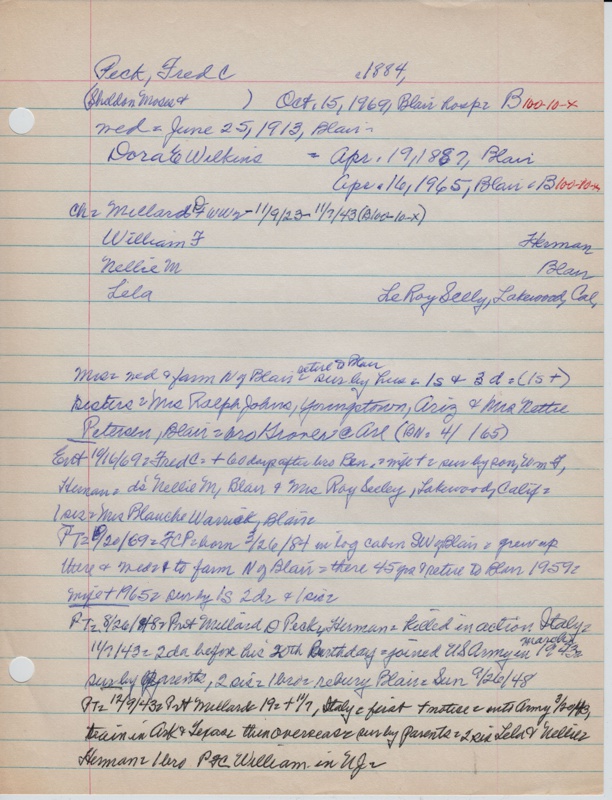 Peck, Fred C 1884,
(Sheldon Moses & ) Oct. 15, 1969, Blair hosp= B100-10-x
wed = June 25, 1913, Blair=
Dora E Wilkins = Apr. 19, 1887, Blair
Apr. 16, 1965, Blair = B100-10-x
Ch= Millard D + WW2 - 11/9/23 - 11/7/43 (B100-10-x)
William F Herman
Nellie M Blair
Lela Le Roy Seely, Lakewood, Cal,
Mrs= wed & farm N of Blair = retire to Blair = sur by hus = 1s & 3 d = (1s +)
sisters = Mrs Ralph Johns, Youngstown, Ariz & Mrs Nettie
Petersen, Blair = bro Grover & Arl (BN= 4/ /65)
Ent 10/16/69 = Fred C = + 60 days after bro Ben, = wife + = sur by son, Wm F,
Herman = ds Nellie M, Blair & Mrs Roy Seeley, Lakewood, Calif =
1 sis = Mrs Blanche Warrick, Blair=
PT= /20/69 = FCP = born 3/26/84 in log cabin SW of Blair = grew up
there & wed = to farm N of Blair = there 45 yrs = retire to Blair 1959=
wife + 1965 = sur by 1s 2ds & 1 sis=
PT= 8/26/48 = Pvt Millard D Peck, Herman = killed in action Italy=
11/7/43 = 2 da before his 20th Birthday = joined US Army in March 1943=
sur by parents, 2 sis = 1 bro = rebury Blair = Sun 9/26/48
PT= 12/9/43 = Pvt Millard = 19 = + 11/7, Italy = first + notice = ents Army 3/20/43,
train in Ark & Texas = then overseas = sur by parents = 2 sis Lela & Nellie=
Herman = 1 bro Pfc William in NJ=